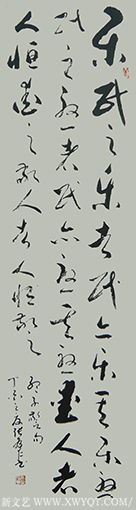 乐民之乐者民亦乐其乐忧
民之忧者民亦忧其忧爱人者
人恒爱之敬人者人恒敬之
孟子警句
新文艺 - WWW.XWYQY.COM